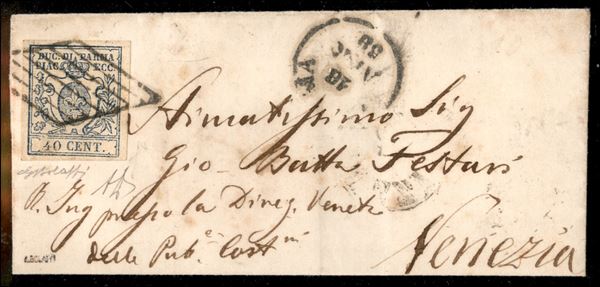 DUC. DI PARMA
PIAC. ECC.
40 CENT.
Stimatissimo Sig
Gio. Batta Festari
R. Ing presso la Direz. Veneta
delle Pub.e Cost.ni
Venezia